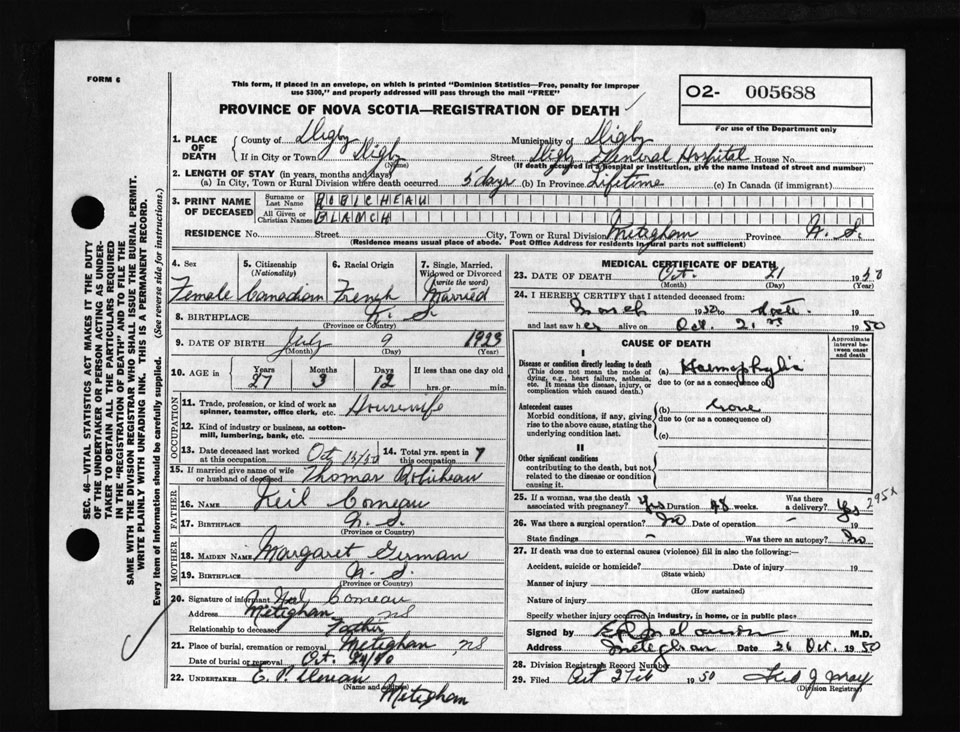 FORM 6
This form, if placed in an envelope, on which is printed "Dominion Statistics—Free, penalty for improper
use $300," and properly addressed will pass through the mail "FREE"
PROVINCE OF NOVA SCOTIA—REGISTRATION OF DEATH
O2- 005688
For use of the Department only
SEC. 46—VITAL STATISTICS ACT MAKES IT THE DUTY
OF THE UNDERTAKER OR PERSON ACTING AS UNDER-
TAKER TO OBTAIN ALL THE PARTICULARS REQUIRED
IN THE "REGISTRATION OF DEATH" AND TO FILE THE
SAME WITH THE DIVISION REGISTRAR WHO SHALL ISSUE THE BURIAL PERMIT.
WRITE PLAINLY WITH UNFADING INK. THIS IS A PERMANENT RECORD.
Every item of information should be carefully supplied. (See reverse side for instructions.)
1. PLACE OF DEATH
County of Digby Municipality of Digby
If in City or Town Digby (Name) Street Digby General Hospital House No.
(If death occurred in a hospital or institution, give the name instead of street and number)
2. LENGTH OF STAY (in years, months and days)
(a) In City, Town or Rural Division where death occurred 5 days (b) In Province Lifetime (c) In Canada (if immigrant)
3. PRINT NAME OF DECEASED
Surname or Last Name ROBICHEAU
All Given or Christian Names BLANCH
RESIDENCE No. Street City, Town or Rural Division Meteghan Province N. S.
(Residence means usual place of abode. Post Office Address for residents in rural parts not sufficient)
4. Sex Female
5. Citizenship (Nationality) Canadian
6. Racial Origin French
7. Single, Married, Widowed or Divorced (write the word) Married
8. BIRTHPLACE N. S.
(Province or Country)
9. DATE OF BIRTH July 9 1923
(Month) (Day) (Year)
10. AGE in Years 27 Months 3 Days 12 If less than one day old
hrs. or min.
OCCUPATION
11. Trade, profession, or kind of work as spinner, teamster, office clerk, etc. Housewife
12. Kind of industry or business, as cotton-mill, lumbering, bank, etc.
13. Date deceased last worked at this occupation Oct 15/50 14. Total yrs. spent in this occupation 7
15. If married give name of wife or husband of deceased Thomas Robicheau
FATHER
16. NAME Neil Comeau
17. BIRTHPLACE N. S.
(Province or Country)
MOTHER
18. MAIDEN NAME Margaret German
19. BIRTHPLACE N. S.
(Province or Country)
20. Signature of informant Neil Comeau
Address Meteghan NS
Relationship to deceased Father
21. Place of burial, cremation or removal Meteghan NS
Date of burial or removal Oct. 24/50
22. UNDERTAKER
(Name and address) Meteghan
MEDICAL CERTIFICATE OF DEATH
23. DATE OF DEATH Oct. 21 1950
(Month) (Day) (Year)
24. I HEREBY CERTIFY that I attended deceased from
March to date
and last saw her alive on Oct. 21 st 1950
CAUSE OF DEATH
Approximate interval between onset and death
I
Disease or condition directly leading to death
(This does not mean the mode of dying, e.g., heart failure, asthenia, etc. It means the disease, injury, or complication which caused death.)
(a) Haemophylia
due to (or as a consequence of)
Antecedent causes
Morbid conditions, if any, giving rise to the above cause, stating the underlying condition last.
(b)
due to (or as a consequence of)
(c)
II
Other significant conditions
contributing to the death, but not related to the disease or condition causing it.
25. If a woman, was the death associated with pregnancy? Yes Duration 48 weeks. Was there a delivery? Yes
26. Was there a surgical operation? No Date of operation - 19
State findings - Was there an autopsy? No
27. If death was due to external causes (violence) fill in also the following:—
Accident, suicide or homicide? Date of injury 19
(State which)
Manner of injury
(How sustained)
Nature of injury
Specify whether injury occurred in industry, in home, or in public place
Signed by M.D.
Address Meteghan Date 26 Oct. 1950
28. Division Registrars Record Number
29. Filed Oct 27th 1950
(Division Registrar)